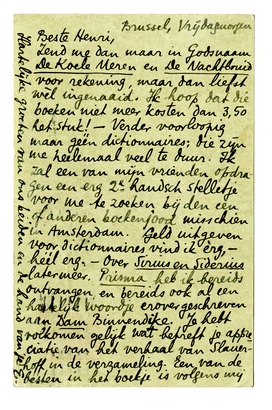 Brussel, Vrijdagmorgen
Beste Henri,
Zend me dan maar in Godsnaam
De Koele Meren en De Nachtbruid
voor rekening, maar dan liefst
wel ingenaaid. Ik hoop dat die
boeken niet meer kosten dan 3,50
het stuk! — Verder voorloopig
maar geen dictionnaires; die zijn
me heelemaal veel te duur. Ik
zal een van mijn vrienden opdra-
gen een erg 2e handsch stelletje
voor me te zoeken bij den een
of anderen boekenjood misschien
in Amsterdam. Geld uitgeven
voor dictionnaires vind ik erg —
héél erg. — Over Sirius en Siderius
later meer. Prisma heb ik bereids
ontvangen en bereids ook al een
hartelijk woordje erover geschreven
aan Dam Binnendijk. Je hebt
volkomen gelijk wat betreft je appre-
ciatie van het verhaal van Slauer-
hoff in de verzameling. Een van de
besten in het boekje is volgens mij
Hartelijke groeten van ons beiden en de hand van je E.